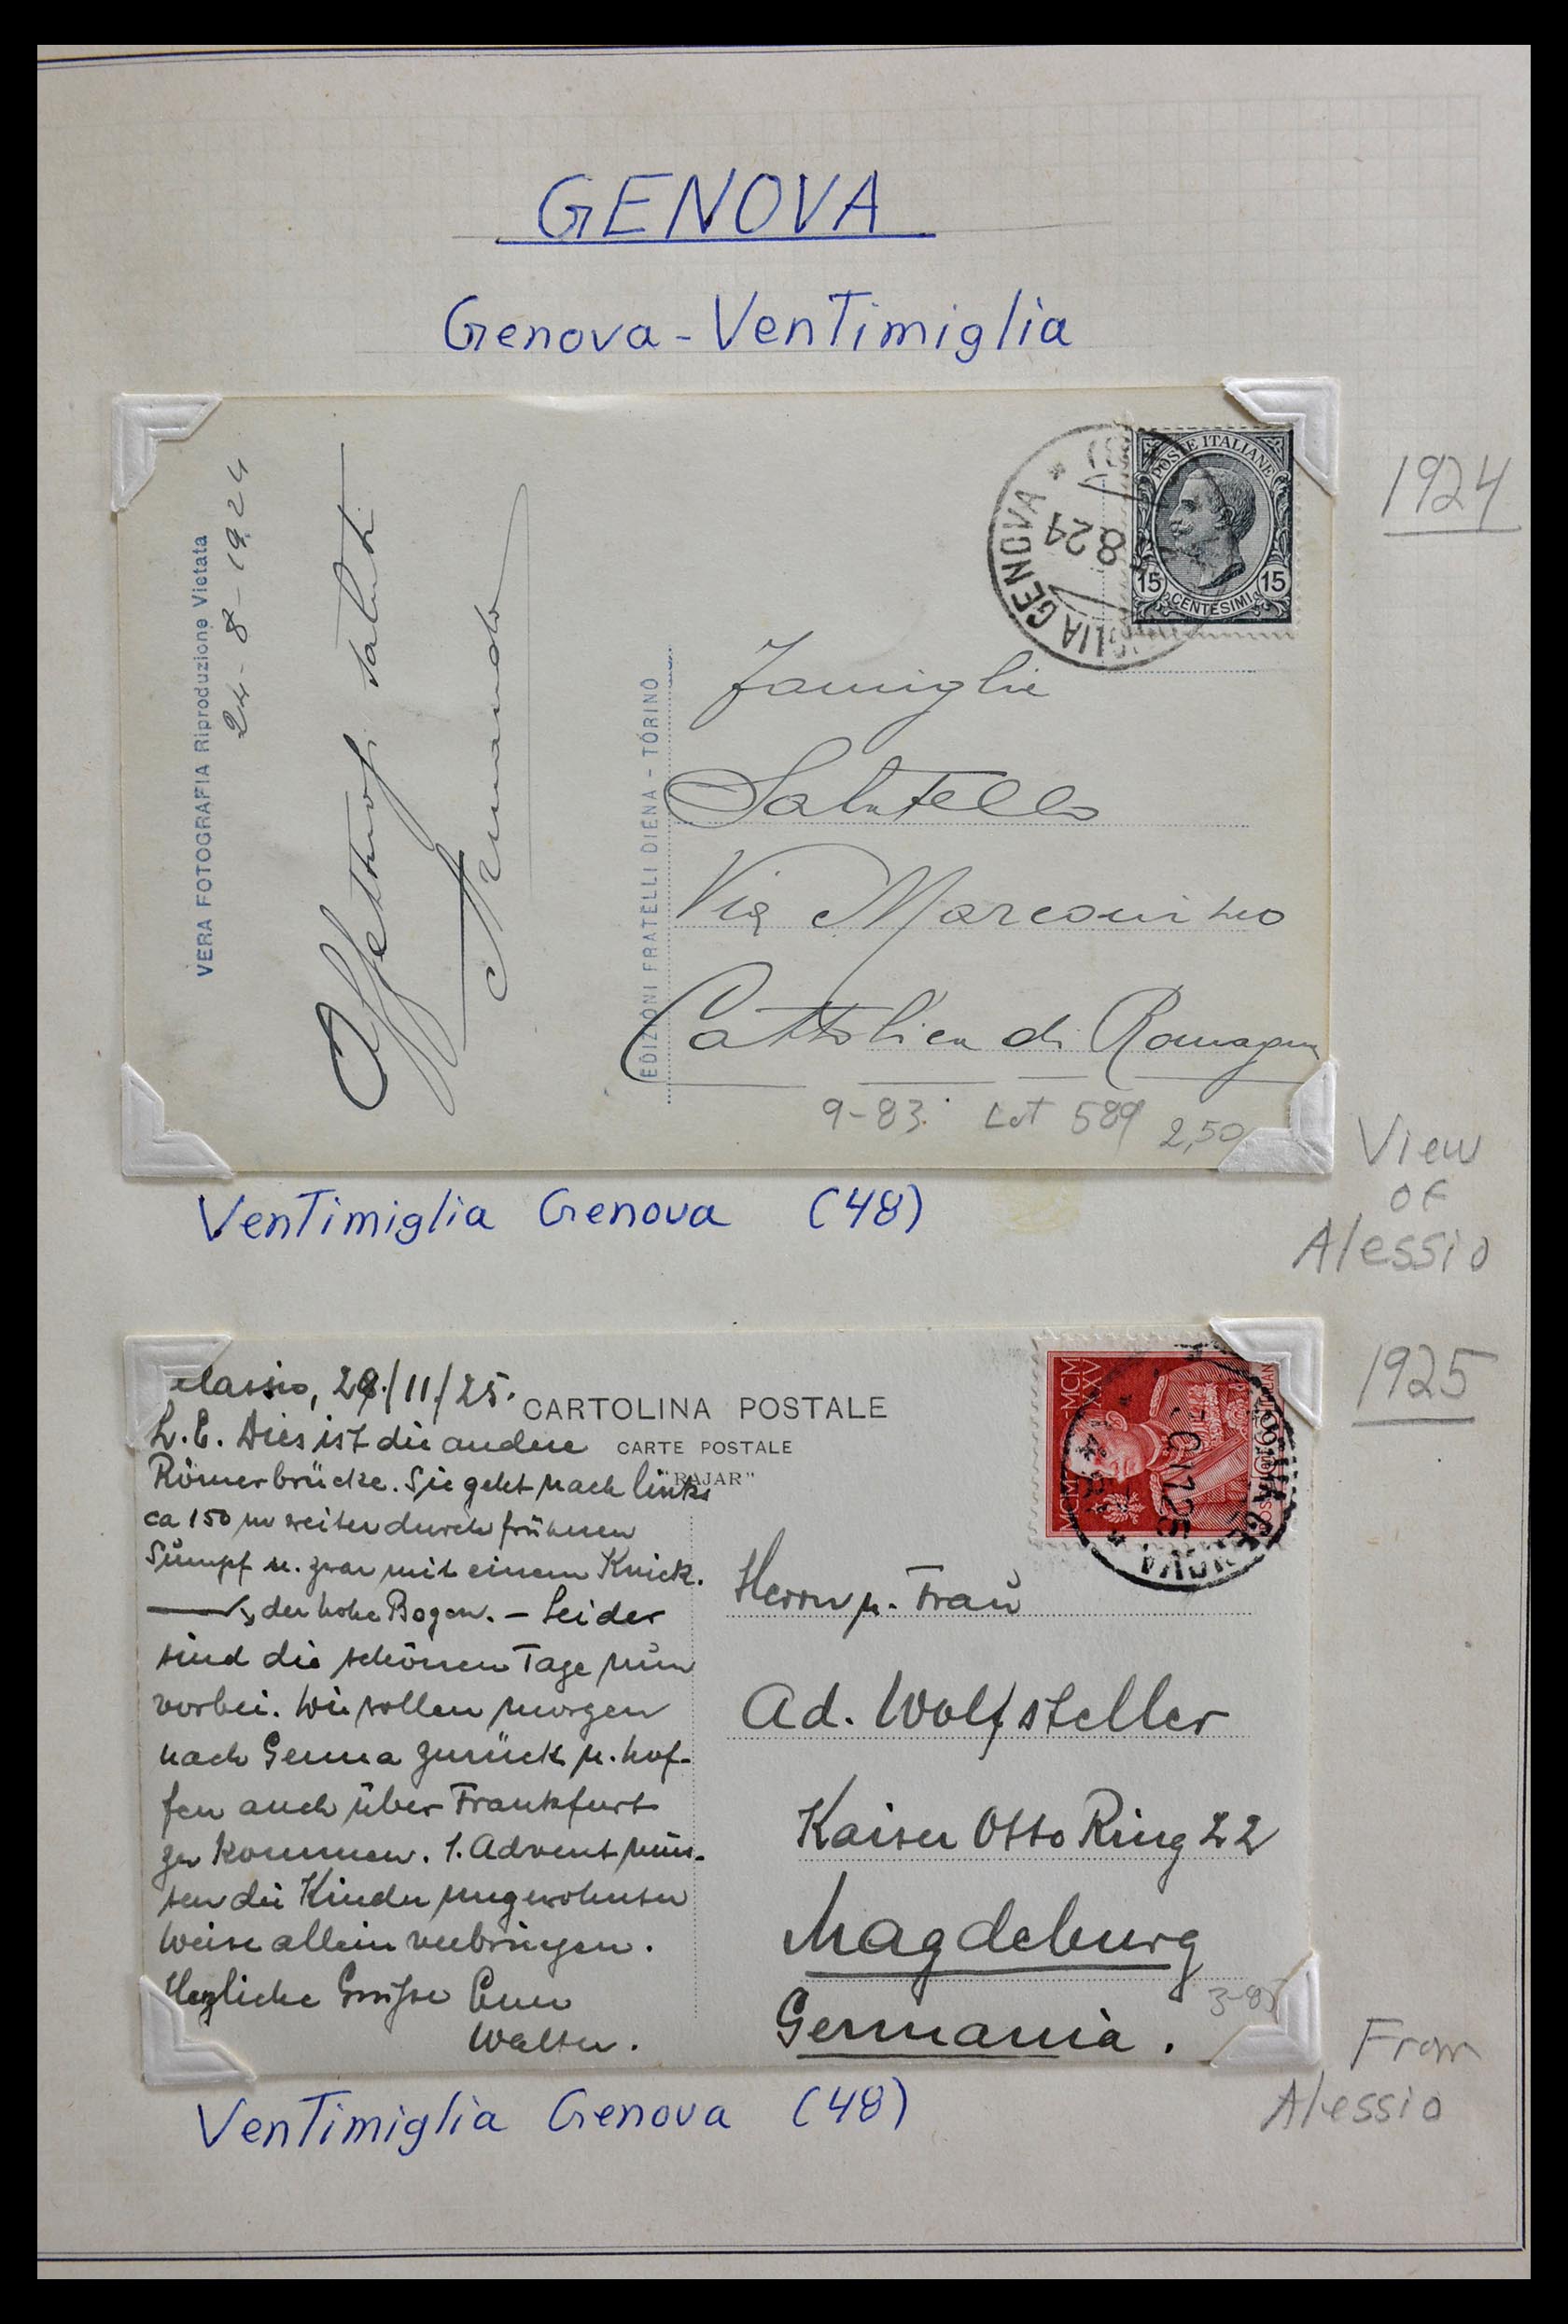 GENOVA
Genova - Ventimiglia
VERA FOTOGRAFIA Riproduzione Vietata
24-8-1924
Affettuosi saluti
Armando
EDIZIONI FRATELLI DIENA - TORINO
IGLIA GENOVA *
8 24
POSTE ITALIANE
15 15
CENTESIMI
Famiglia
Via
Cattolica di Romagna
9-83. Lot 589 2,50
1924
View
of
Alessio
Ventimiglia Genova (48)
1925
Alassio, 28/11/25.
CARTOLINA POSTALE
CARTE POSTALE
"RAJAR"
L.E. Dies ist die andere
Römerbrücke. Sie geht nach links
ca 150 m weiter durch früheren
Sumpf u. zwar mit einem Knick.
der hohe Bogen. – Leider
sind die schönen Tage nun
vorbei. Wir wollen morgen
nach Genua zurück u. hof-
fen auch über Frankfurt
zu kommen. 1. Advent müs-
sen die Kinder ungewohnter
Weise allein verbringen.
Herzliche Grüße Euer
Walter.
MCM-MCM
XXV
GENOVA
Herrn u. Frau
Ad. Wolfsteller
Kaiser Otto Ring 22
Magdeburg
Germania.
From
Alessio
Ventimiglia Genova (48)